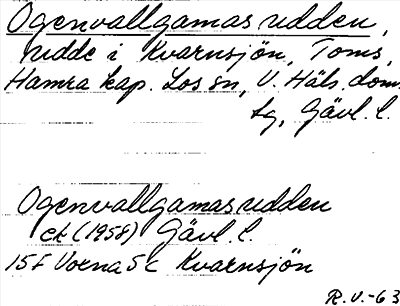 Ogenvallgamasudden,
udde i Kvarnsjön, Toms,
Hamra kap. Los sn, V. Häls. doms.
tg, Gävl. l.
Ogenvallgamasudden
ek (1958) Gävl. l.
15F Voxna 5c Kvarnsjön
R.V.-63